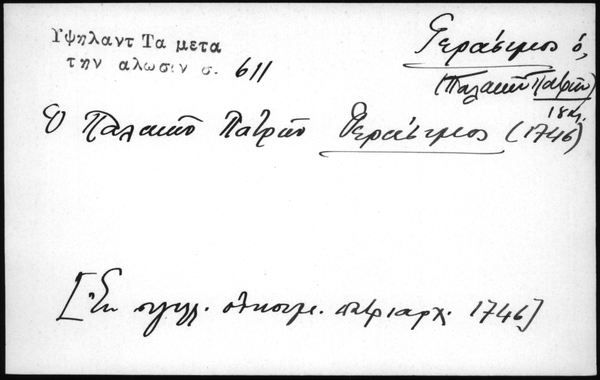 Υψηλαντ Τα μετα
την αλωσιν σ. 611
Γεράσιμος ὁ,
(Παλαιῶν Πατρῶν)
18 αι.
Ὁ Παλαιῶν Πατρῶν Γεράσιμος (1746)
[Ἐκ συγγλ. πατριαρχ. 1746]